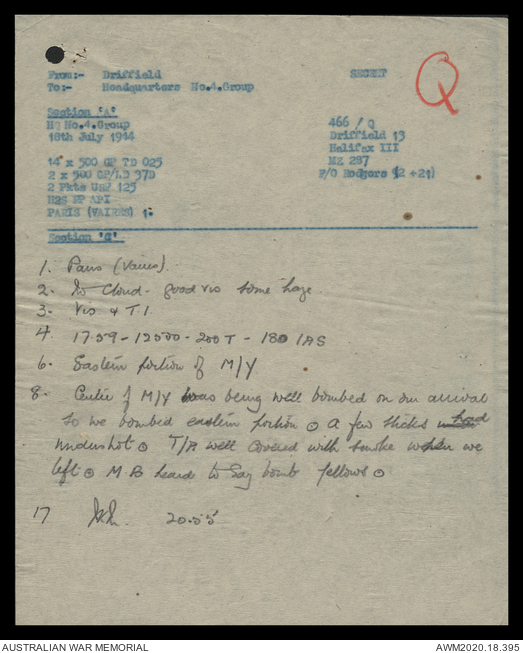 Q
From:- Driffield SECRET
To:- Headquarters No.4.Group
Section 'A'
HQ No.4.Group 466/Q
18th July 1944 Driffield 13
Halifax III
14 x 500 GP TD 025 MZ 287
2 x 500 GP/LD 37D F/O Rodgers (2 + 21)
2 Pkts 125
H2S API
PARIS (VAIRES) 1.
Section 'G'
1. Paris (Vaires).
2. No Cloud - good vis some haze
3. Vis & T.I.
4. 17.59 - 12500 - 200 T - 180 IAS
6. Eastern portion of M/Y
8. Centre of M/Y was being well bombed on our arrival
so we bombed eastern portion ⊙ A few sticks had
undershot ⊙ T/A well covered with smoke when we
left ⊙ M B heard to say bomb fellows ⊙
17 20.55
AUSTRALIAN WAR MEMORIAL AWM2020.18.395